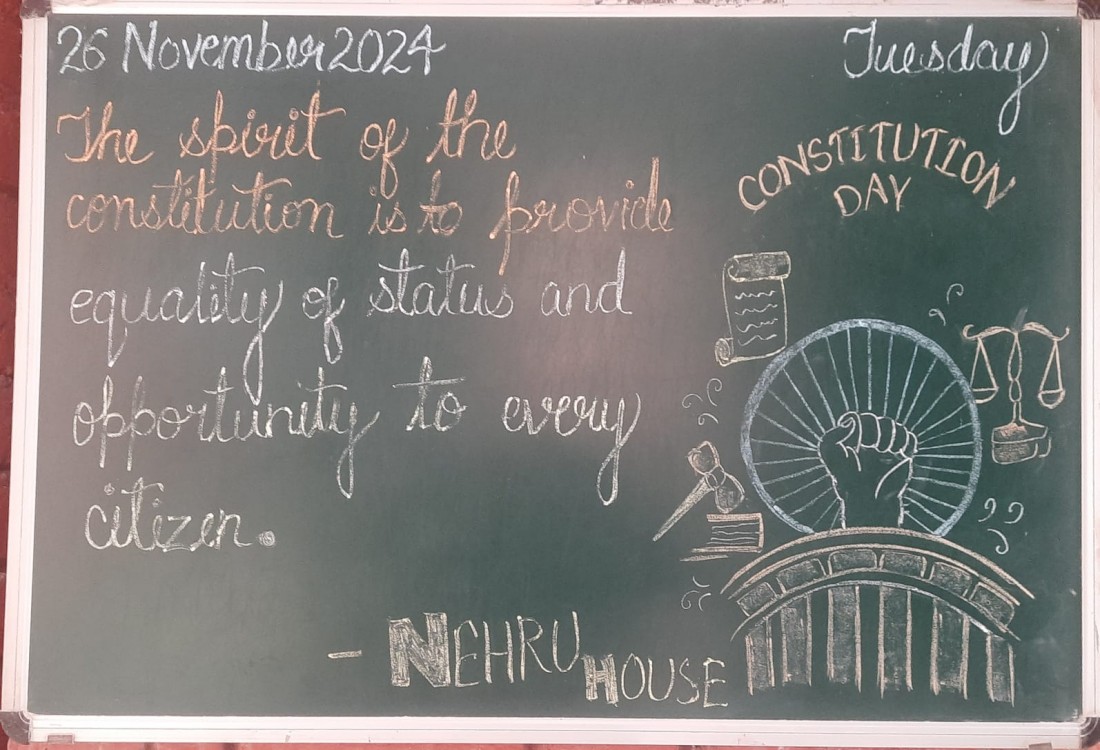 26 November 2024
Tuesday
The spirit of the
constitution is to provide
equality of status and
opportunity to every
citizen.
- NEHRU HOUSE
CONSTITUTION
DAY